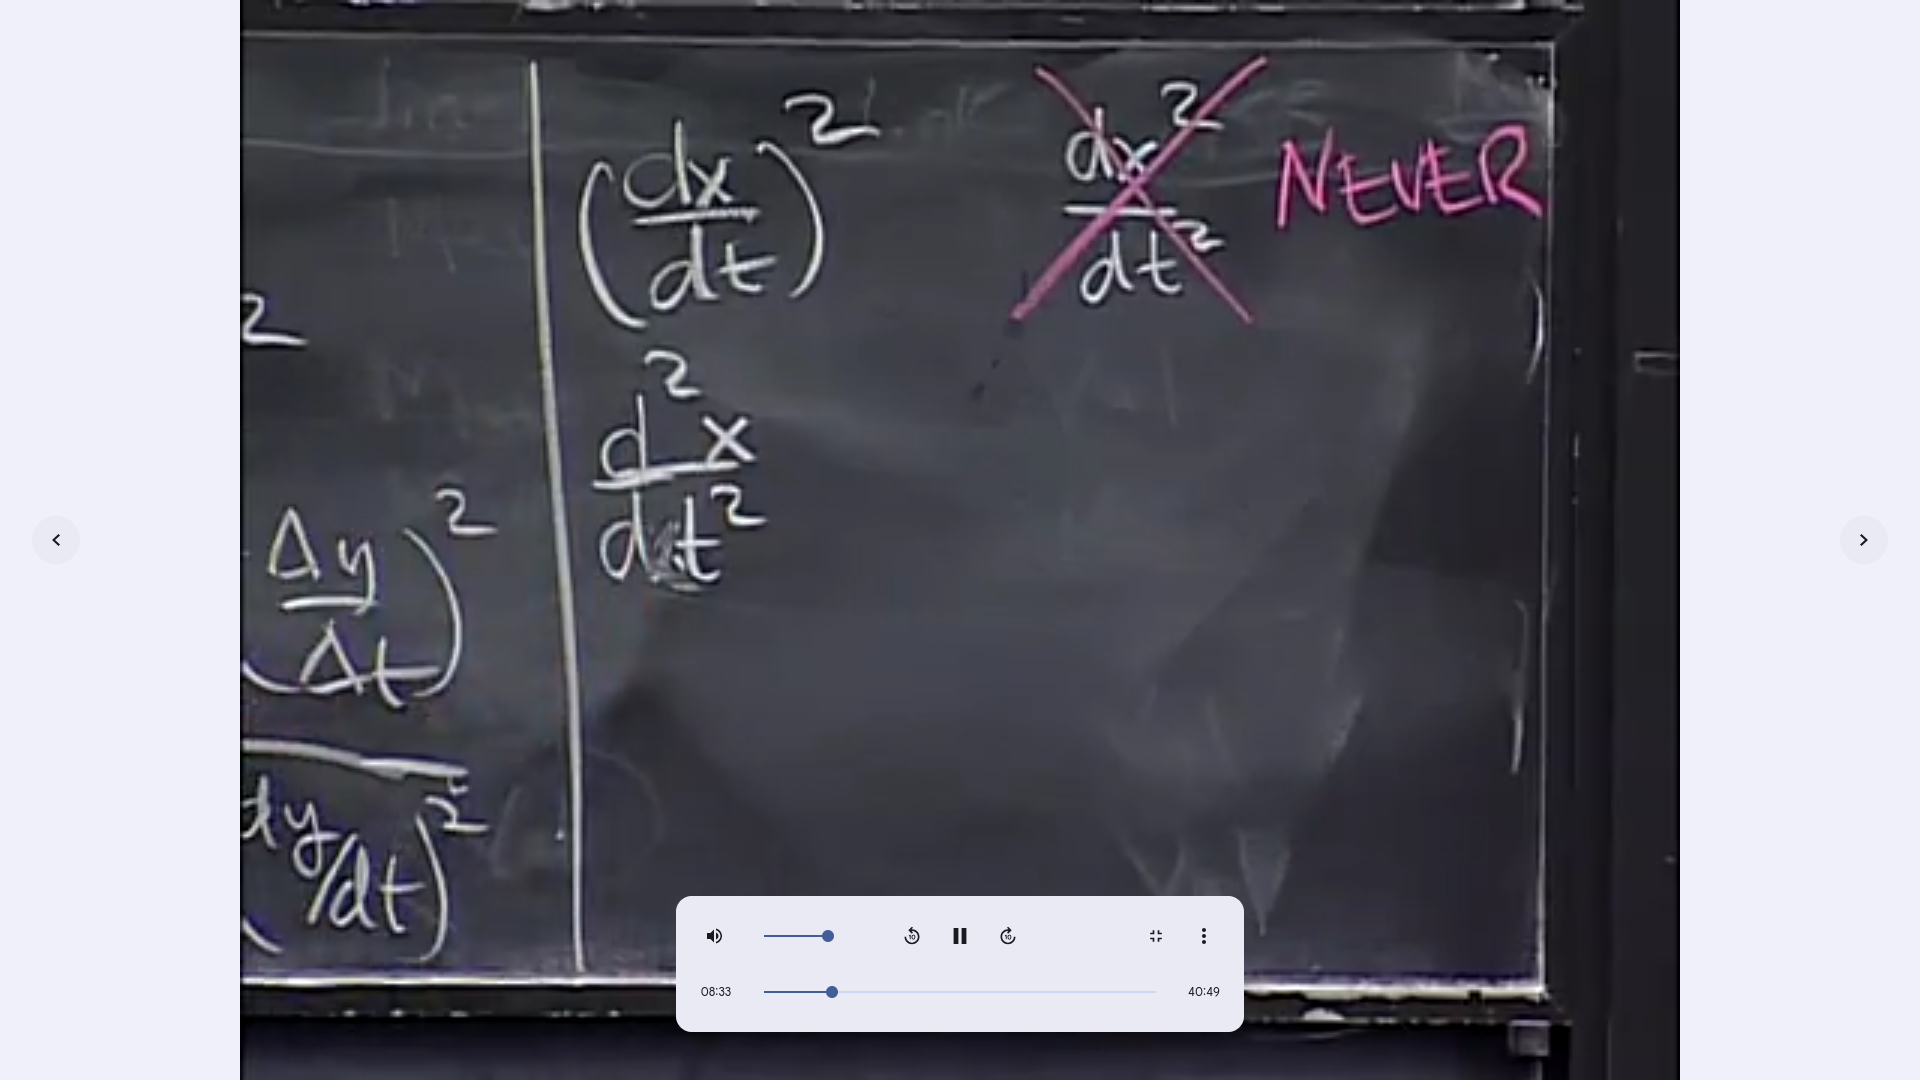 2
(Δy/Δt)²
dy/dt)²
(dx/dt)²
d²x/dt²
dx²/dt² NEVER
10 10
08:33 40:49